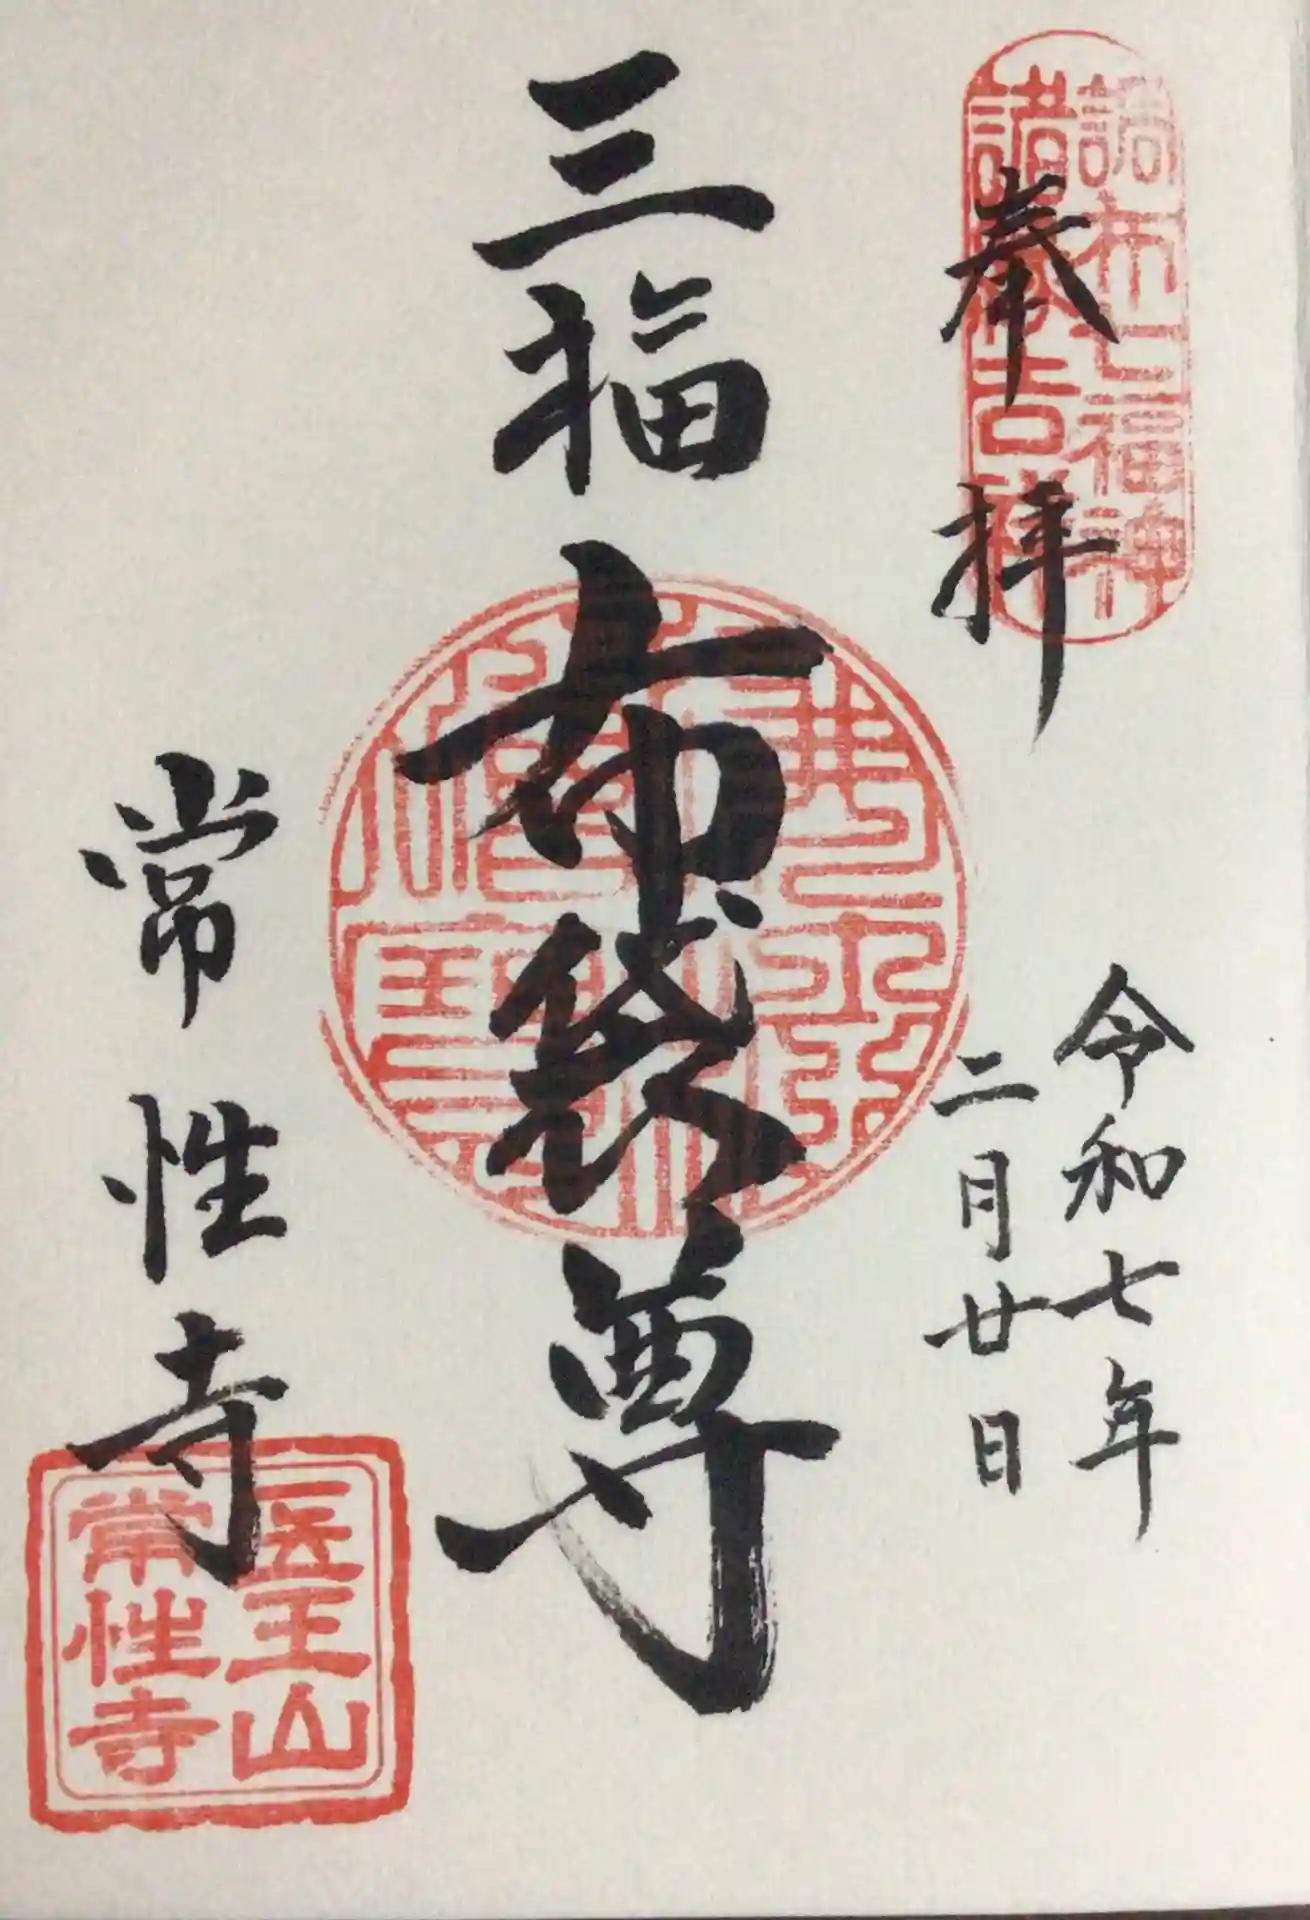 調布七福神
諸縁吉祥
奉拝
令和七年
二月廿日
三福
布袋尊
常性寺
医王山
常性寺